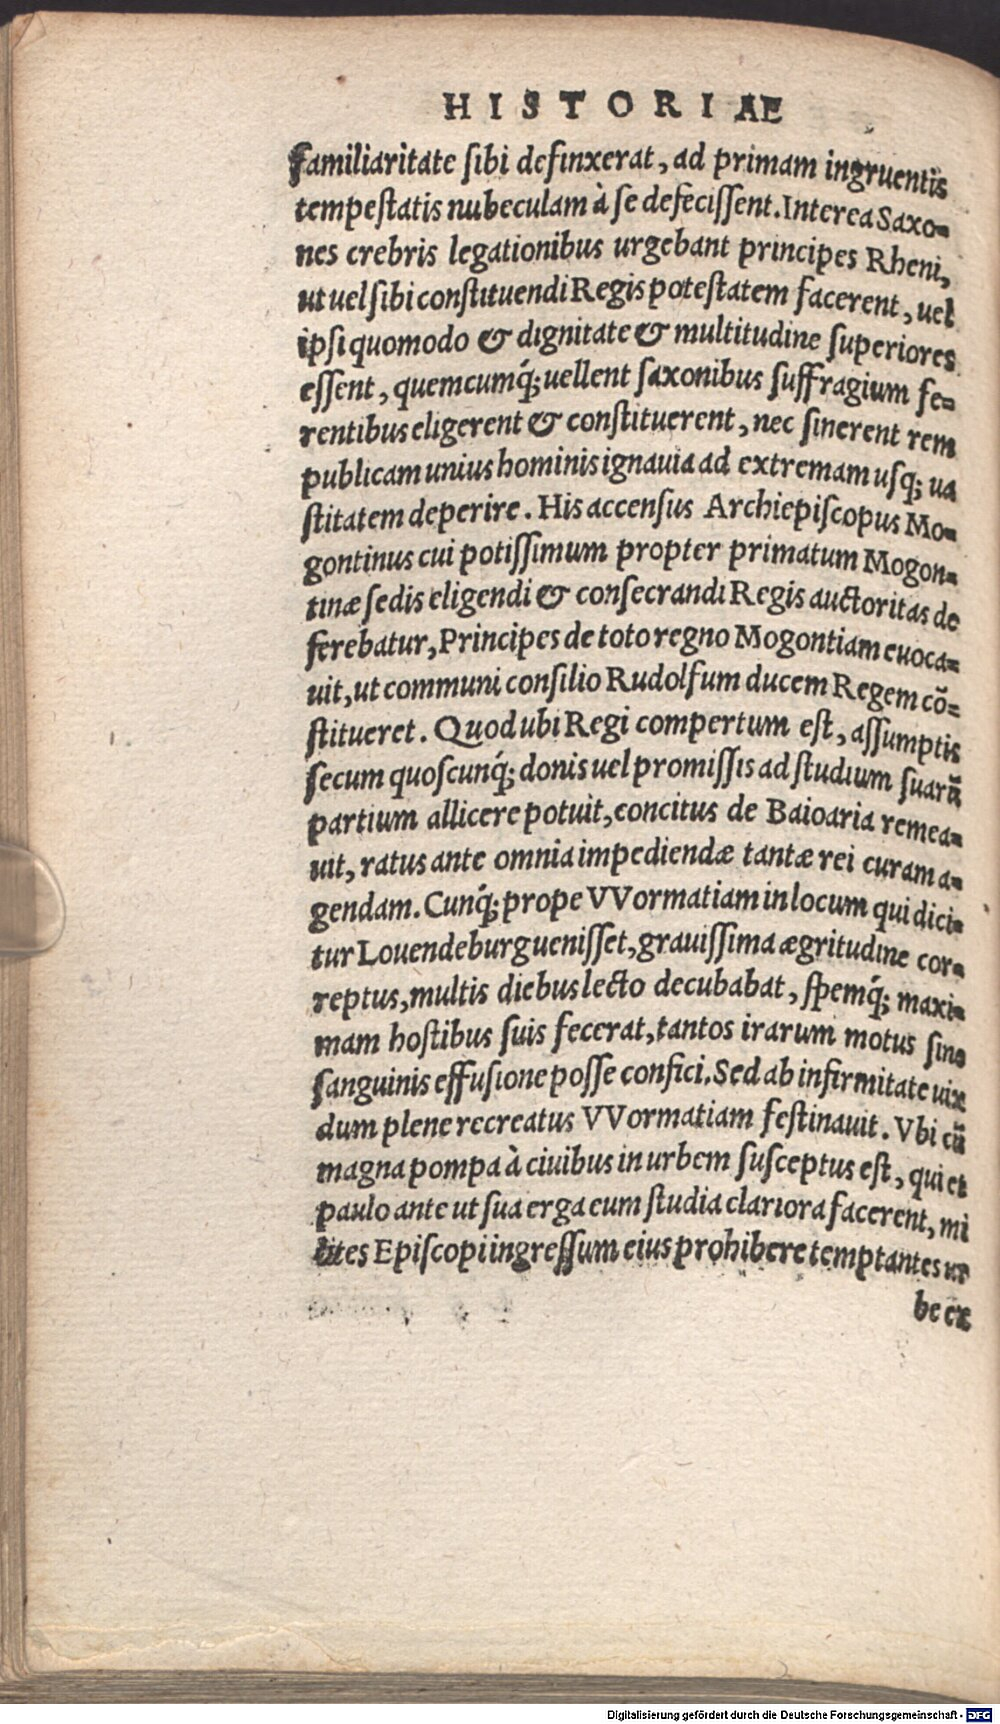 HISTORIAE
familiaritate sibi definxerat, ad primam ingruentis
tempestatis nubeculam à se defecissent. Interea Saxo=
nes crebris legationibus urgebant principes Rheni,
ut uel sibi constituendi Regis potestatem facerent, uel
ipsi quomodo & dignitate & multitudine superiores
essent, quemcumq́; uellent saxonibus suffragium fe=
rentibus eligerent & constituerent, nec sinerent rem
publicam unius hominis ignauia ad extremam usq; ua
stitatem deperire. His accensus Archiepiscopus Mo=
gontinus cui potissimum propter primatum Mogon=
tinæ sedis eligendi & consecrandi Regis auctoritas de
ferebatur, Principes de toto regno Mogontiam euoca=
uit, ut communi consilio Rudolfum ducem Regem cō=
stitueret. Quod ubi Regi compertum est, assumptis
secum quoscunq́; donis uel promissis ad studium suarū
partium allicere potuit, concitus de Baioaria remea=
uit, ratus ante omnia impediendæ tantæ rei curam a=
gendam. Cunq́; prope VVormatiam in locum qui dici=
tur Louendeburg uenisset, grauissima ægritudine cor=
reptus, multis diebus lecto decubabat, spemq́; maxi=
mam hostibus suis fecerat, tantos irarum motus sine
sanguinis effusione posse confici. Sed ab infirmitate uix
dum plene recreatus VVormatiam festinauit. Vbi cū
magna pompa à ciuibus in urbem susceptus est, qui et
paulo ante ut sua erga eum studia clariora facerent, mi
lites Episcopi ingressum eius prohibere temptantes ur
be ex
Digitalisierung gefördert durch die Deutsche Forschungsgemeinschaft - DFG